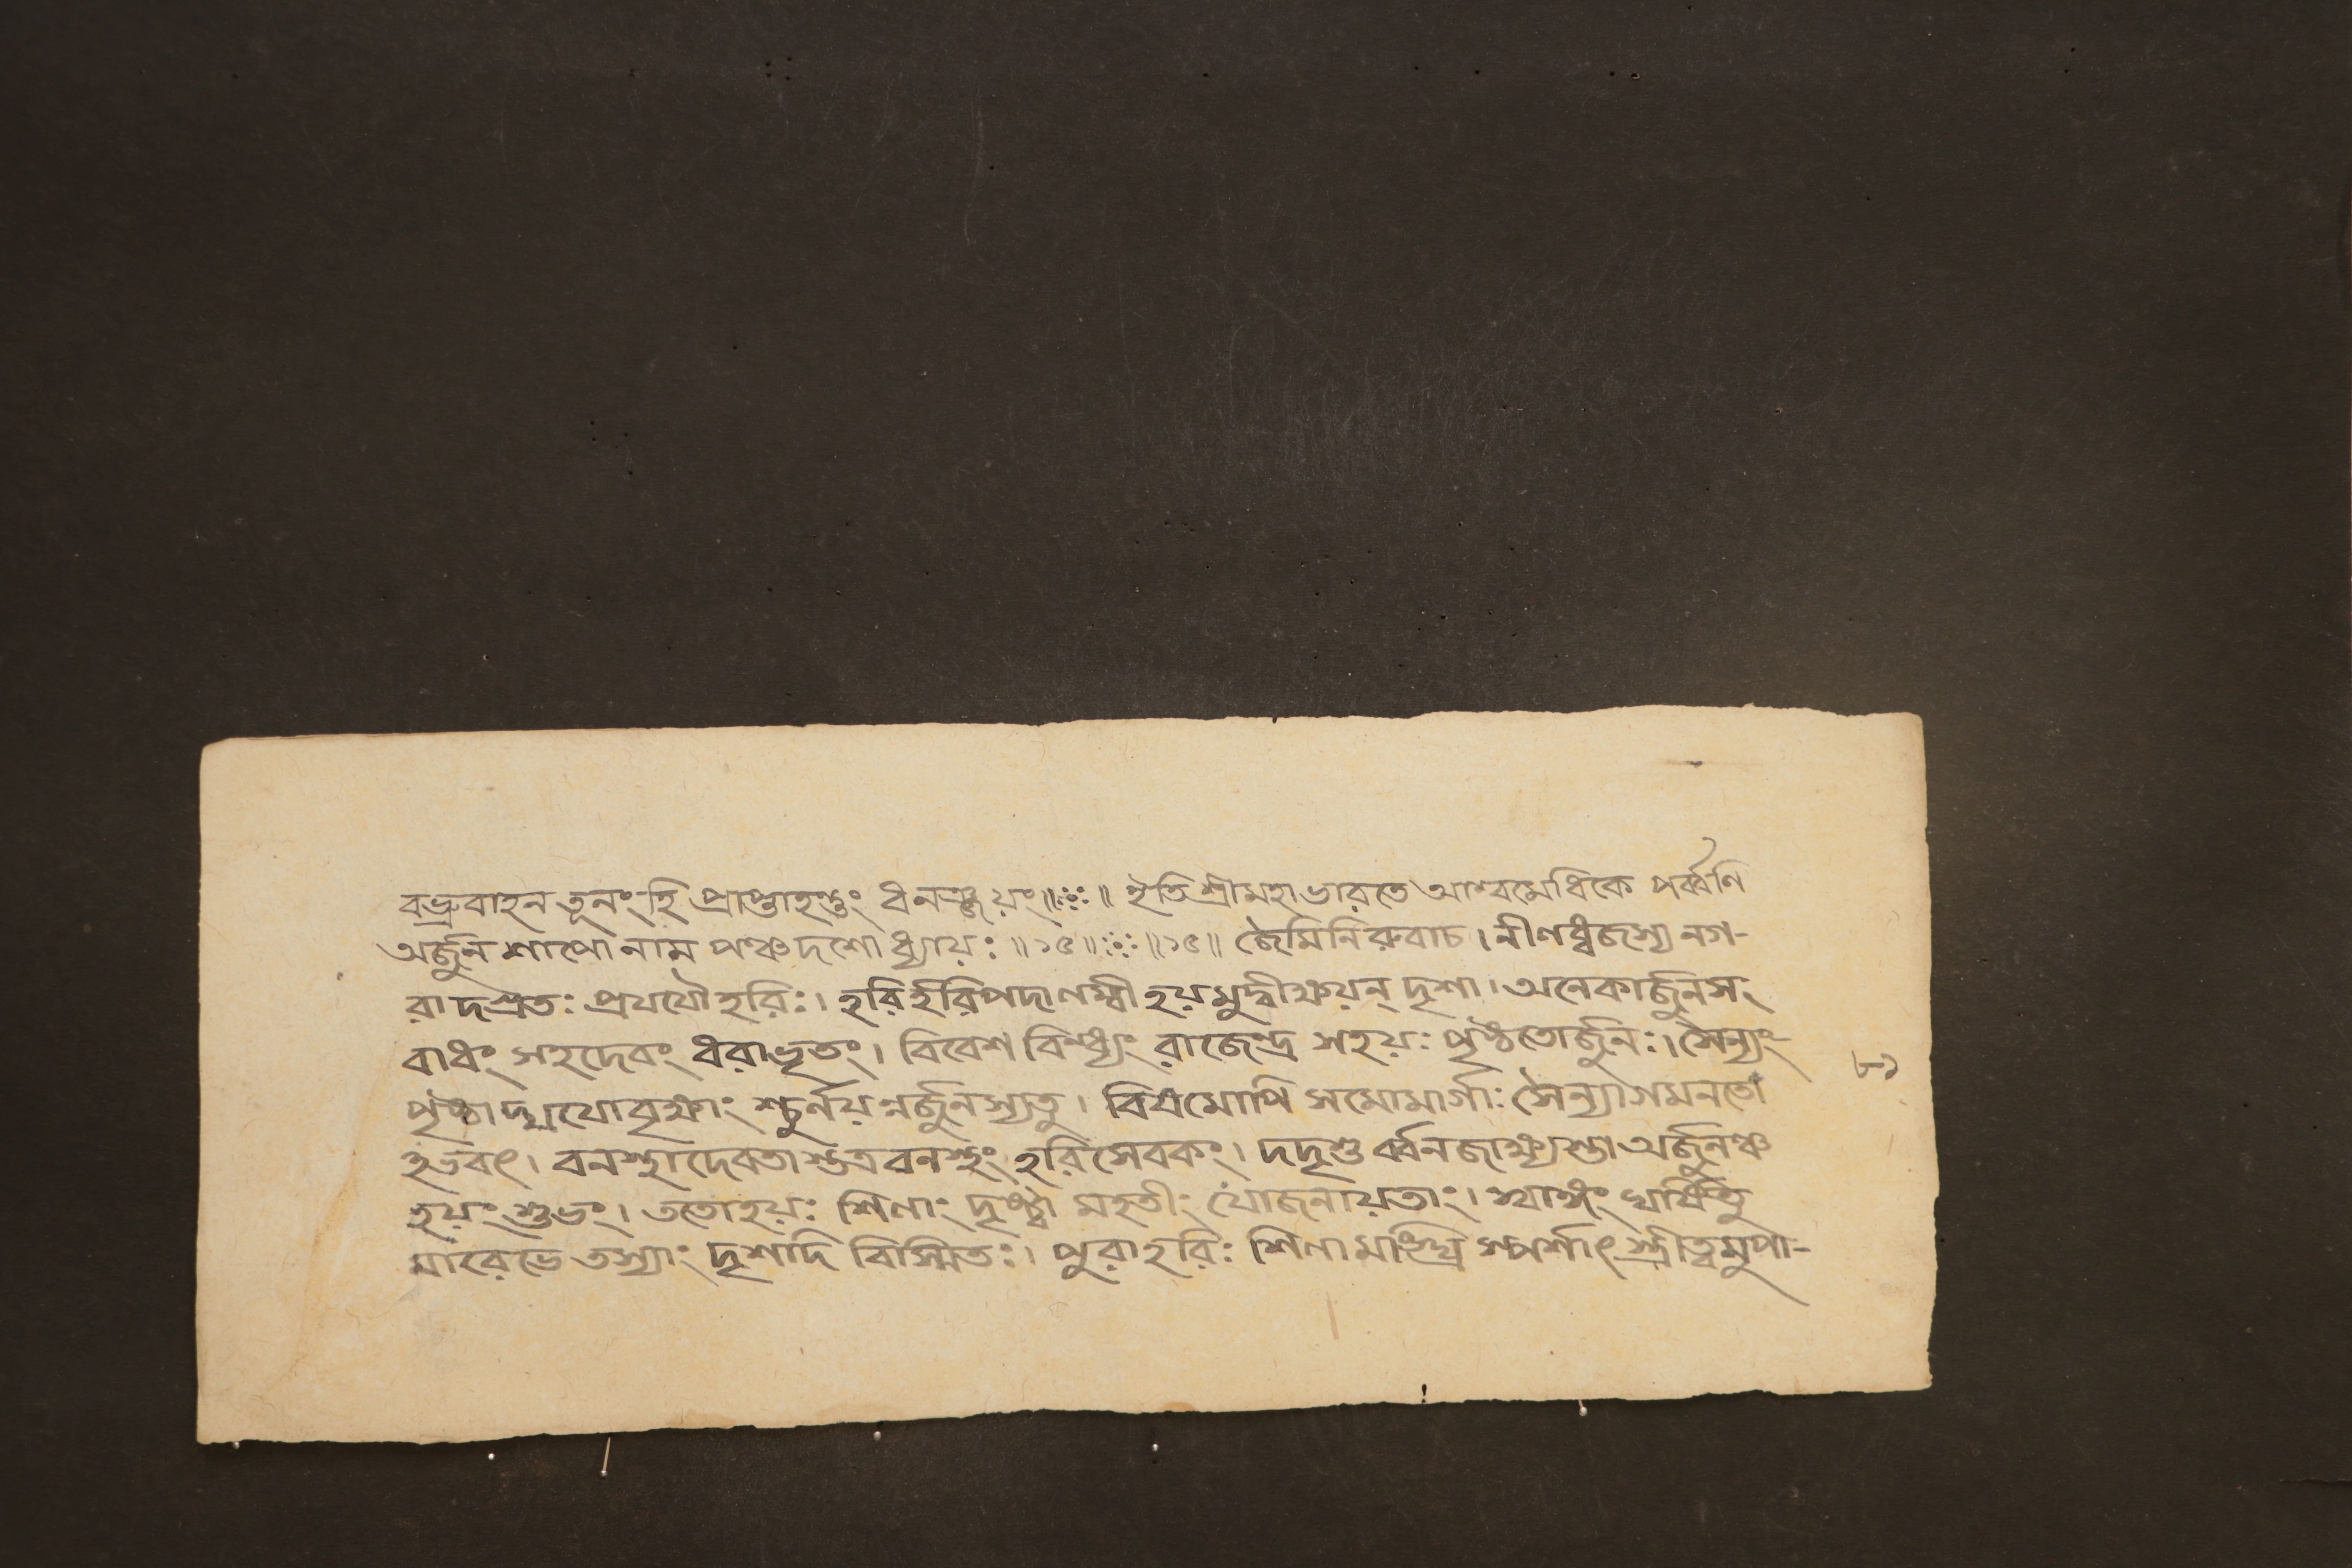 বভ্রুবাহন তূনং হি প্রাপ্তাহন্তুং ধনঞ্জয়ং॥ঃ॥ ইতি শ্রীমহাভারতে আশ্বমেধিকে পর্ব্বণি
অর্জুন শাপো নাম পঞ্চদশোধ্যায়ঃ॥১৫॥ঃ॥১৫॥ জৈমিনিরুবাচ। নীলধ্বজস্য নগ-
রাদগ্রতঃ প্রযযৌ হরিঃ। হরির্হরিপদালম্বী হয়মুদ্বীক্ষয়ন্ দৃশা। অনেকার্জুনসং
বাধং সহদেবং ধরাভৃতং। বিবেশ বিন্ধ্যং রাজেন্দ্র সহয়ঃ পৃষ্ঠতোর্জুনঃ। সৈন্যং
পৃষ্ঠাদ্ যযো বৃক্ষাং শ্চুর্নয়ন্নর্জুনস্যতু। বিষমোপি সমোমার্গাঃ সৈন্যাগমনতো
ঽভবৎ। বনস্থাদেবতাস্তত্র বনস্থং হরিসেবকং। দদৃশু র্ব্বনজাক্ষ্যস্তা অর্জুনঞ্চ
হয়ং শুভং। ততোহয়ঃ শিলাং দৃষ্ট্বা মহতীং যোজনায়তাং। স্বাঙ্গং ঘর্ষিতু
মারেভে তস্যাং দৃশদি বিস্মিতঃ। পুরা হরিঃ শিলামাংঘ্রি স্পর্শাৎ স্ত্রীত্বমুপা-
৮১